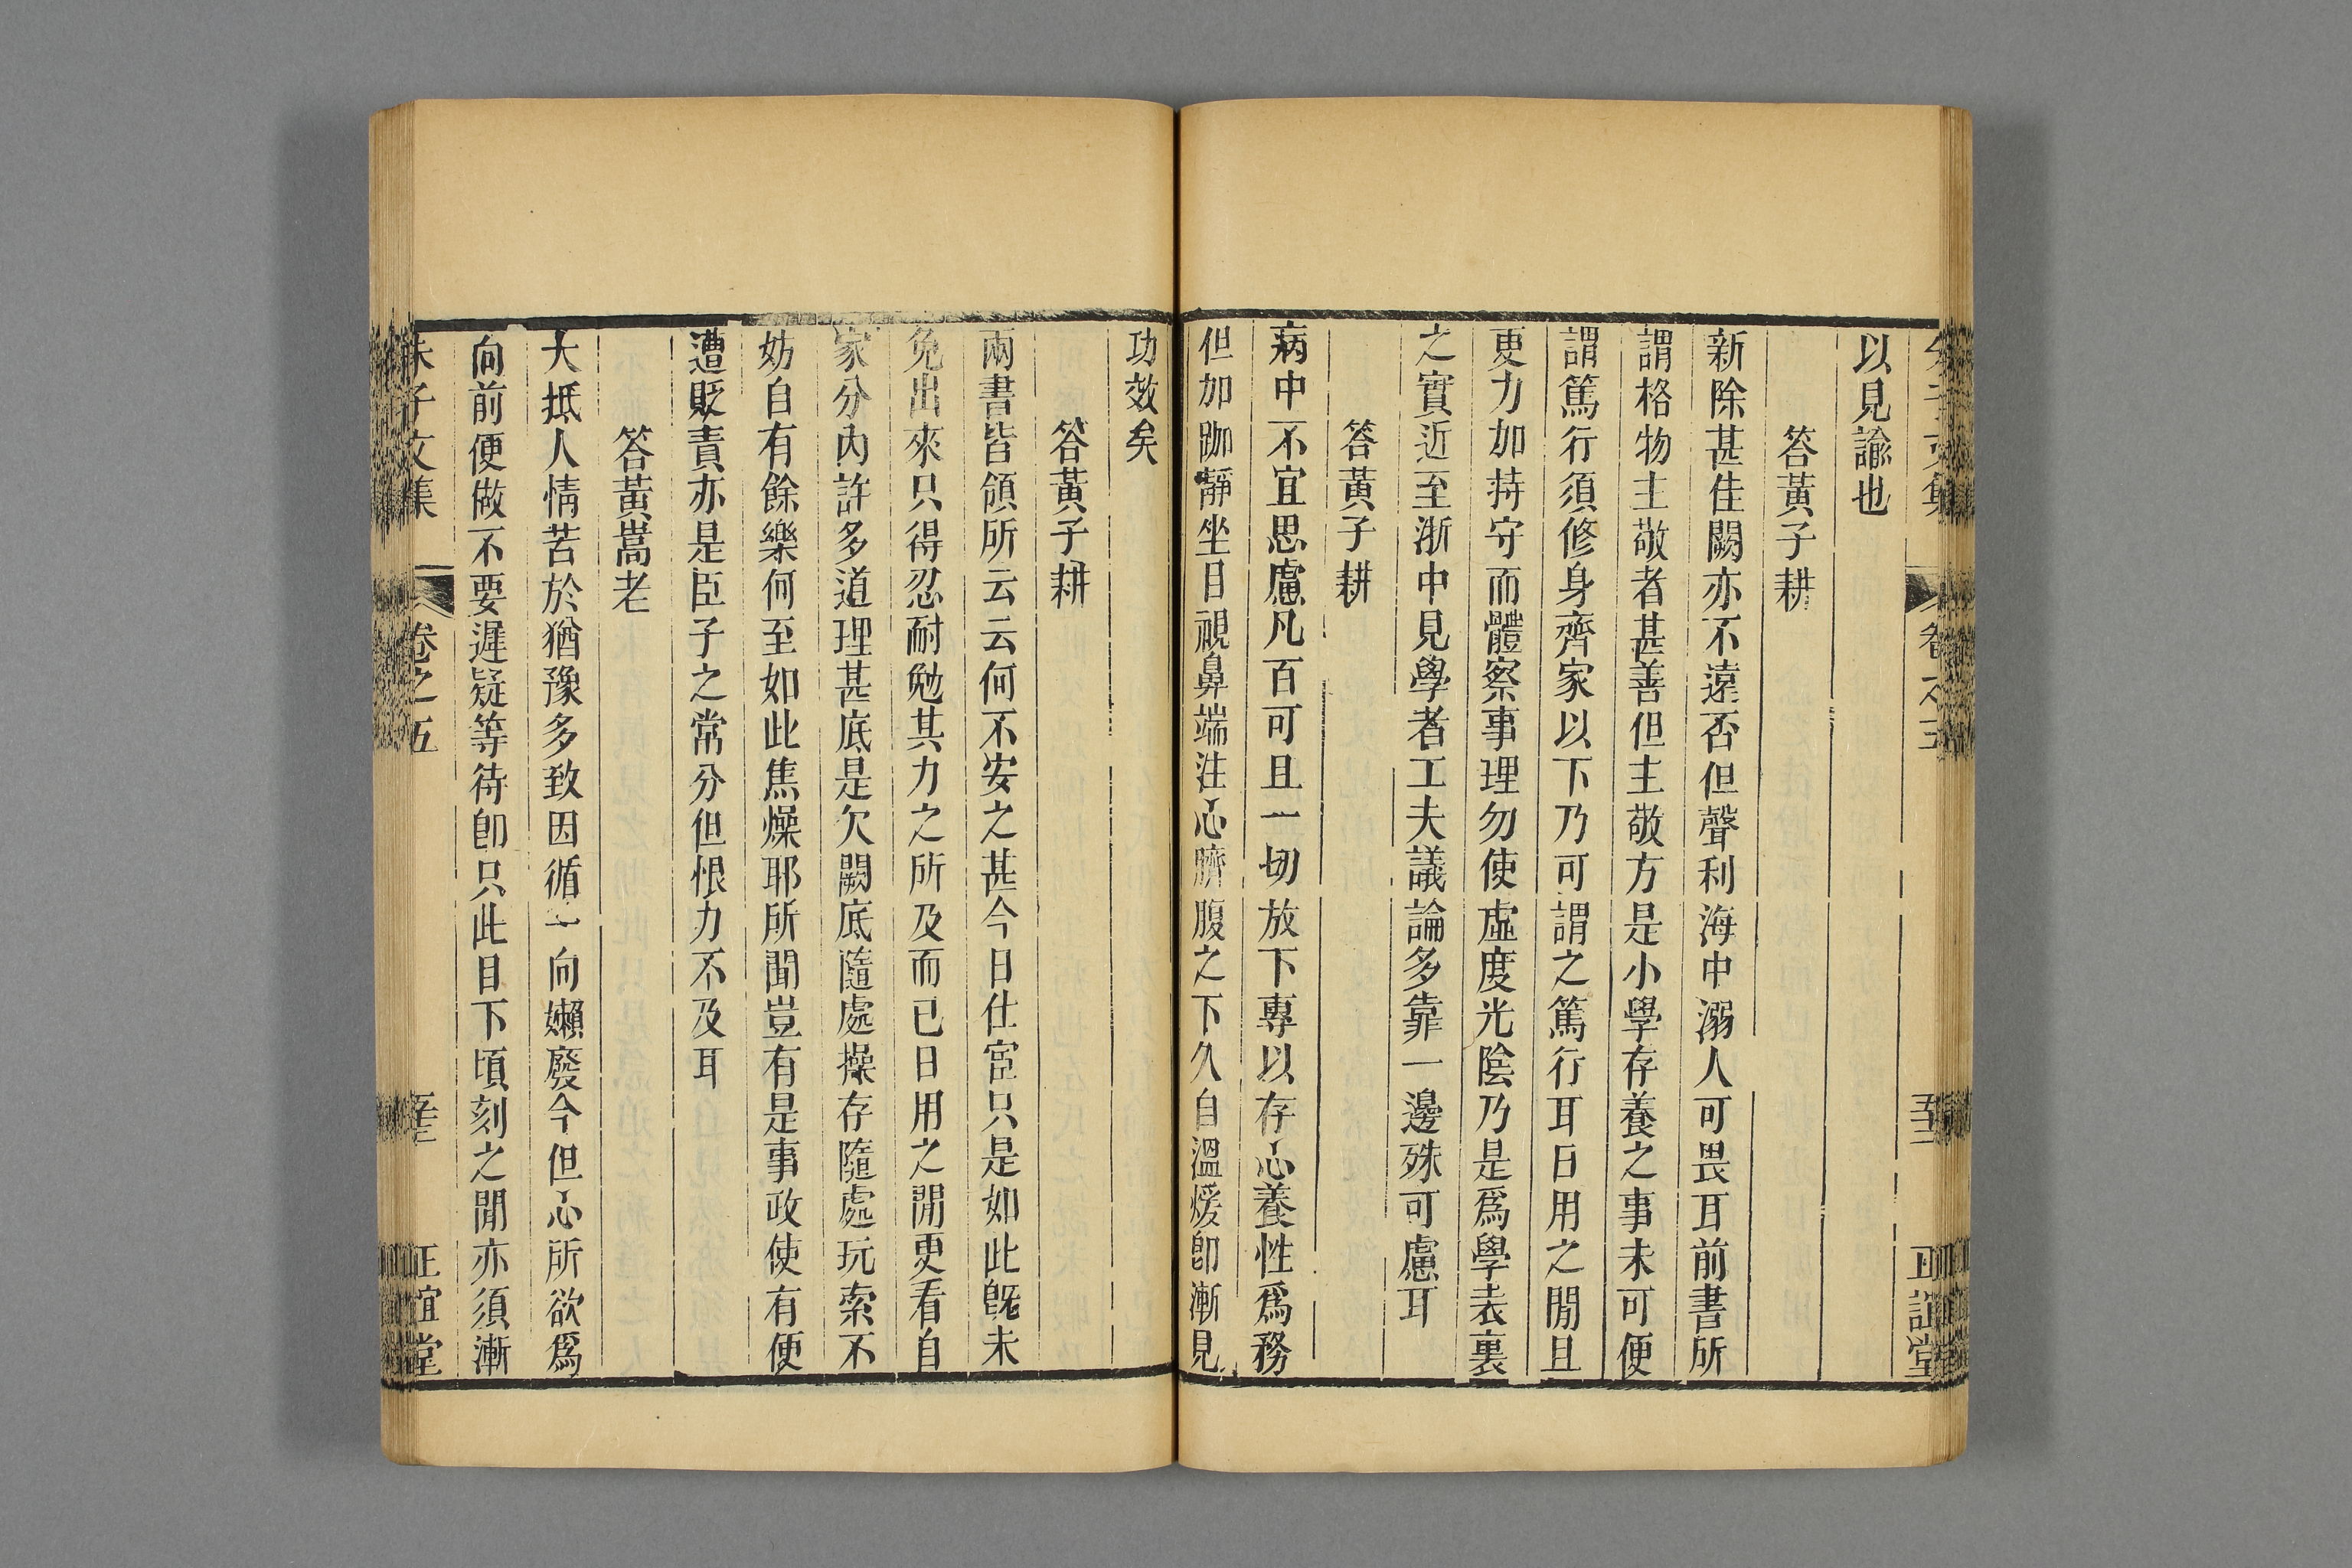 以見諭也
答黃子耕
新除甚佳闕亦不遠否但聲利海中溺人可畏耳前書所
謂格物主敬者甚善但主敬方是小學存養之事未可便
謂篤行須修身齊家以下乃可謂之篤行耳日用之間且
更力加持守而體察事理勿使虛度光陰乃是爲學表裏
之實近至浙中見學者工夫議論多靠一邊殊可慮耳
答黃子耕
病中不宜思慮凡百可且一切放下專以存心養性爲務
但加趺靜坐目視鼻端注心臍腹之下久自溫煖卽漸見
功效矣
答黃子耕
兩書皆領所云云何不安之甚今日仕宦只是如此旣未
免出來只得忍耐勉其力之所及而已日用之閒更看自
家分內許多道理甚底是欠闕底隨處操存隨處玩索不
妨自有餘樂何至如此焦燥耶所聞豈有是事政使有便
遭貶責亦是臣子之常分但恨力不及耳
答黃嵩老
大抵人情苦於猶豫多致因循一向嬾廢今但心所欲爲
向前便做不要遲疑等待卽只此目下頃刻之閒亦須漸
朱子文集
卷之五
正誼堂